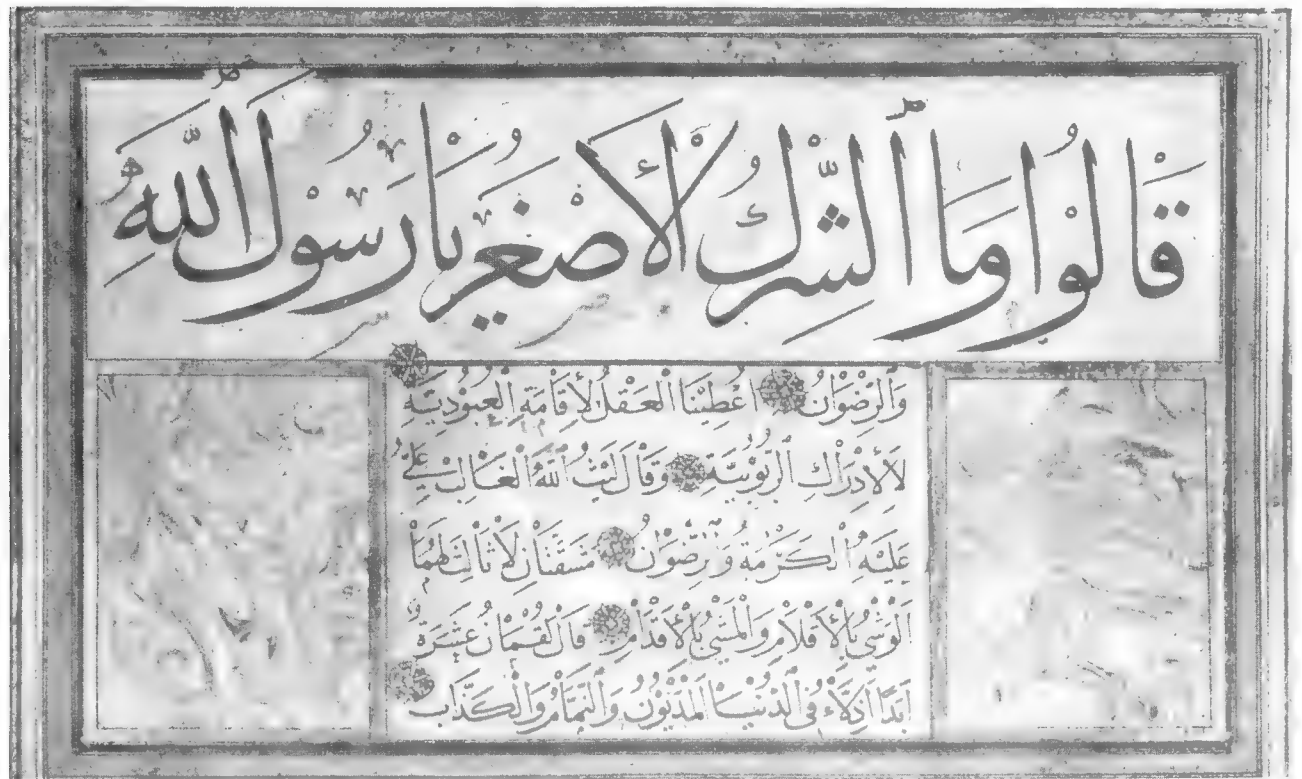 قَالُوْا وَمَا ٱلشِّرْكُ ٱلْأَصْغَرُ يَا رَسُوْلَ ٱللّٰهِ
وَٱلرِّضْوَانُ اُعْطِيْنَا ٱلْعَقْلَ لِأِقَامَةِ ٱلْعُبُوْدِيَّةِ
لَا لِأِدْرَاكِ ٱلرُّبُوْبِيَّةِ وَقَالَ لَيْثُ ٱللّٰهِ ٱلْغَالِبُ عَلِيٌّ
عَلَيْهِ ٱلْكَرْمَةُ وَٱلرِّضْوَانُ مَشَقَّتَانِ لَا ثَالِثَ لَهُمَا
ٱلْوَشْيُ بِالْأَقْلَامِ وَٱلْمَشْيُ بِالْأَقْدَامِ قَالَ لُقْمَانُ عَشَرَةٌ
اَبَدًا اَذِلَّاءُ فِى ٱلدُّنْيَا ٱلْمَدْيُوْنُ وَٱلنَّمَّامُ وَٱلْكَذَّابُ